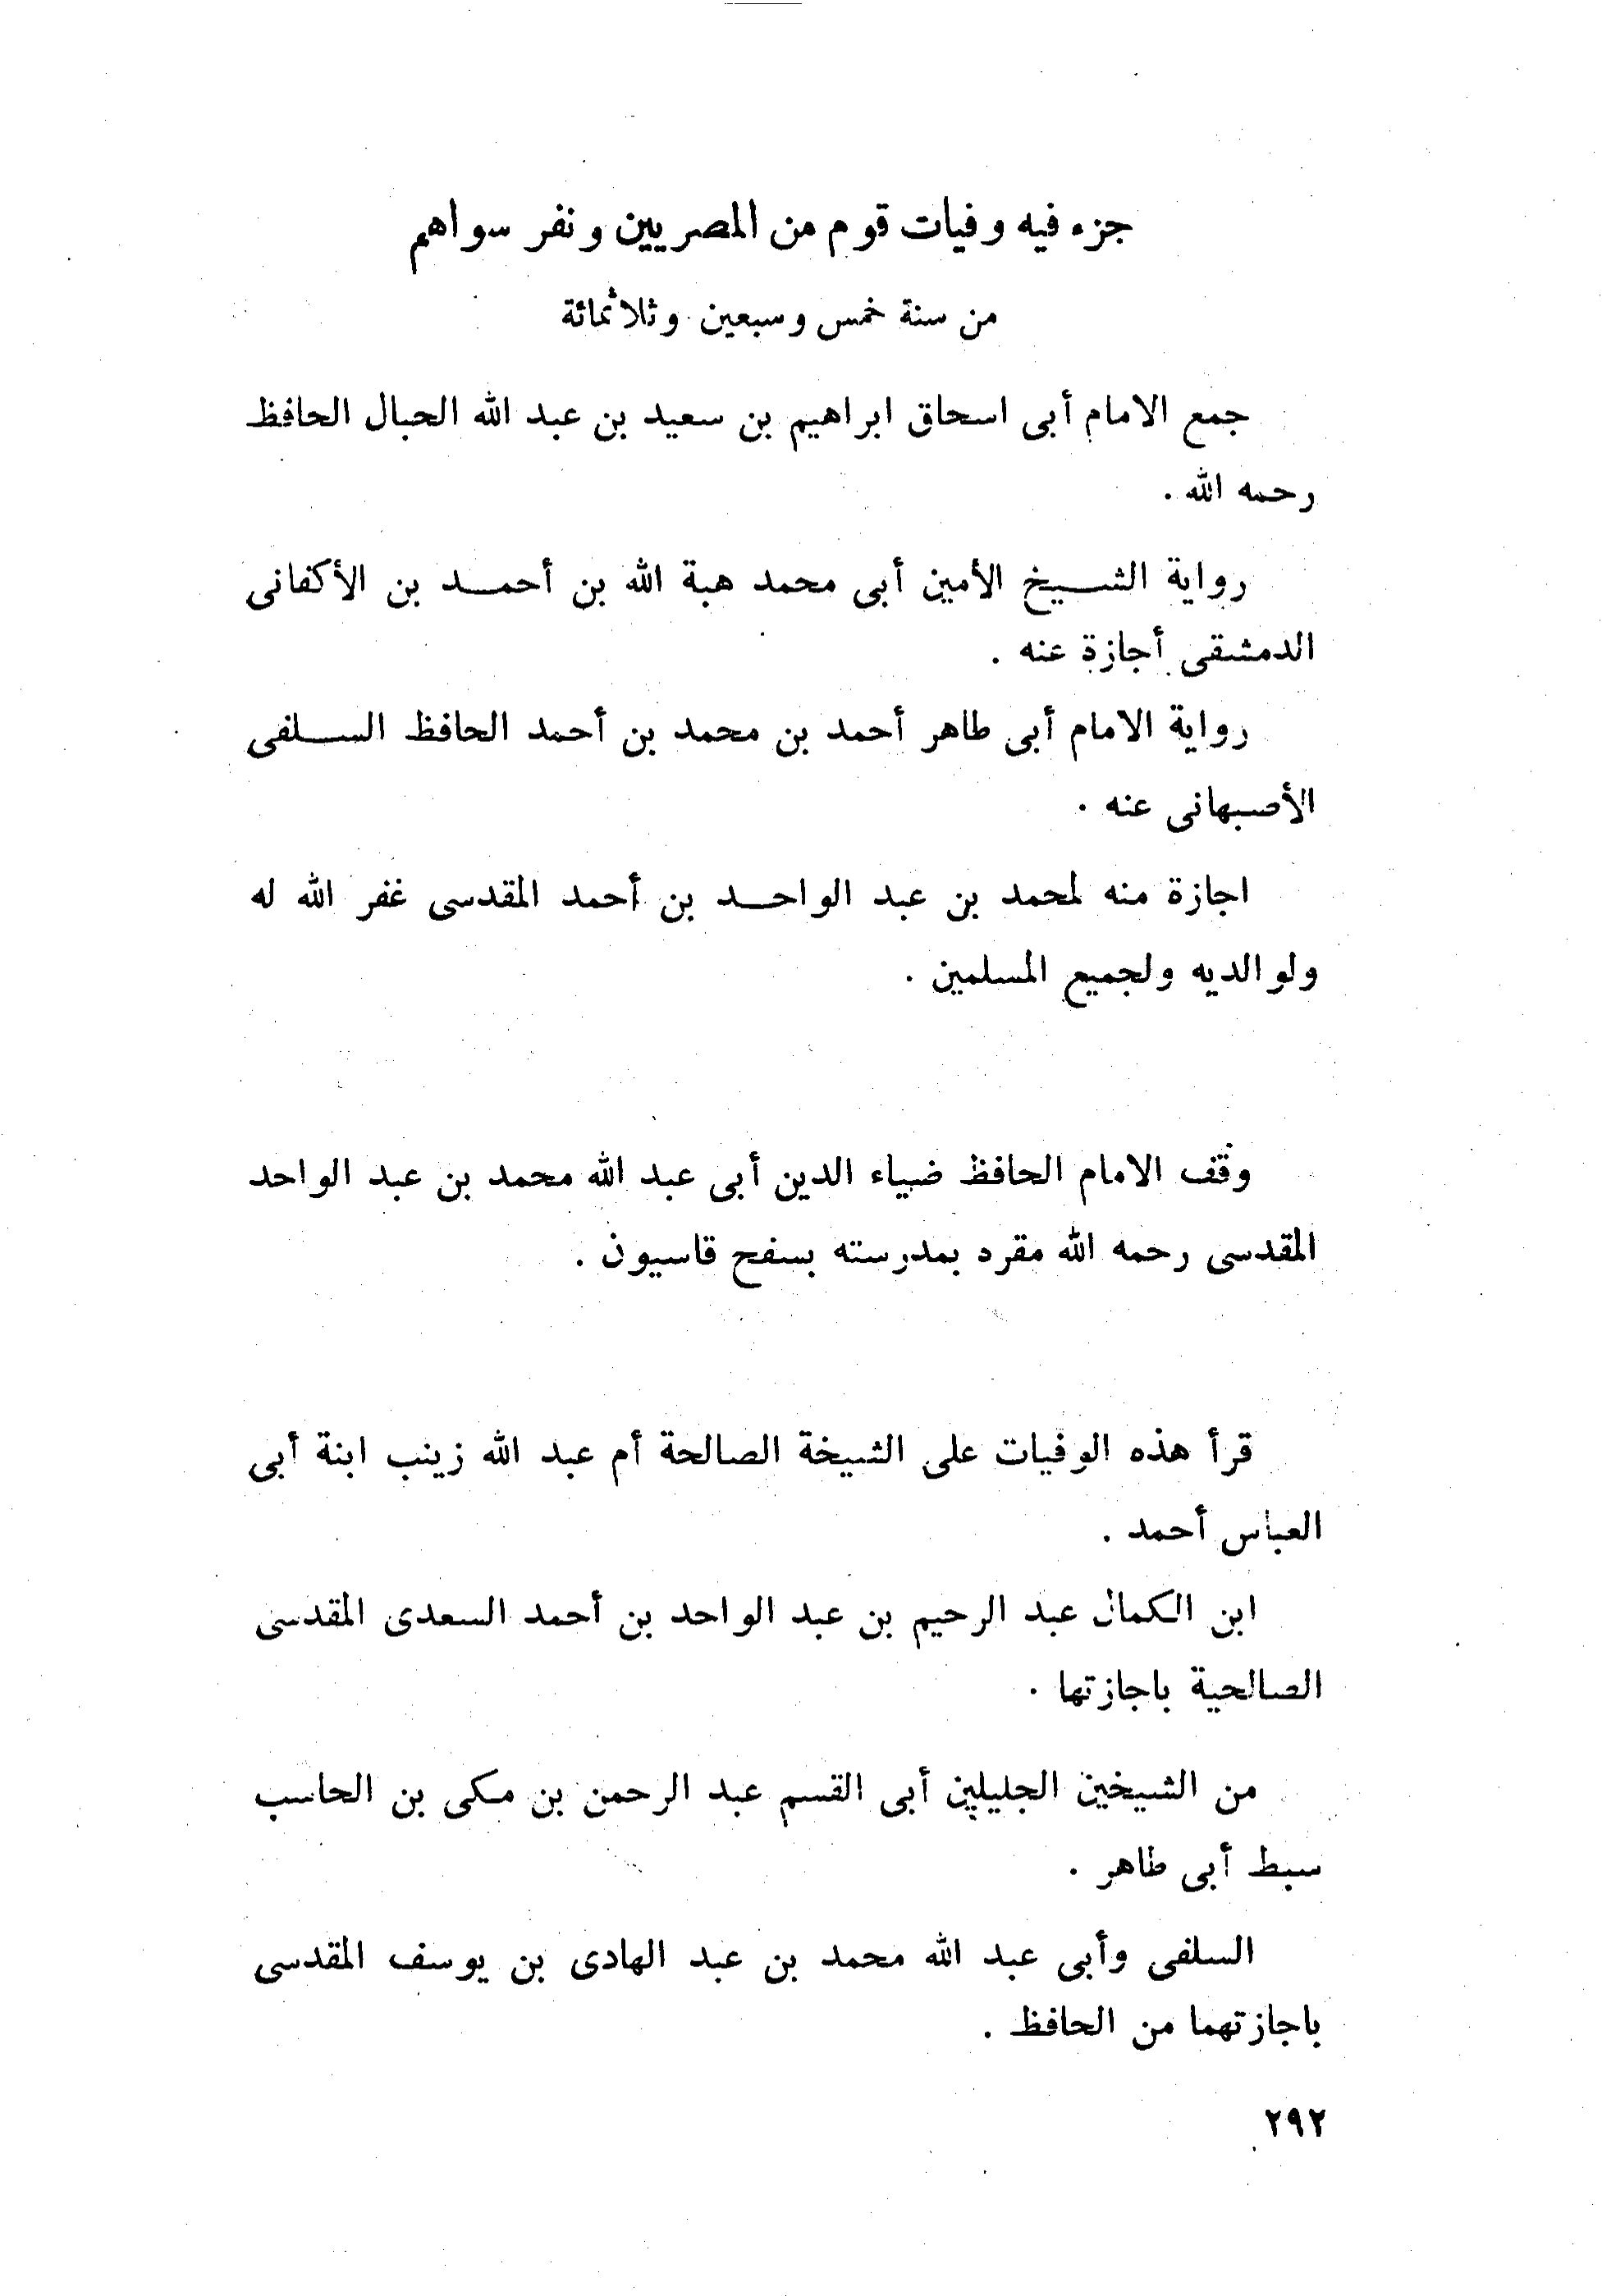 جزء فيه وفيات قوم من المصريين ونفر سواهم
من سنة خمس وسبعين وثلاثمائة
جمع الامام أبى اسحاق ابراهيم بن سعيد بن عبد الله الحبال الحافظ
رحمه الله .
رواية الشيخ الأمين أبى محمد هبة الله بن أحمد بن الأكفانى
الدمشقى أجازة عنه .
رواية الامام أبى طاهر أحمد بن محمد بن أحمد الحافظ السلفى
الأصبهانى عنه .
اجازة منه لمحمد بن عبد الواحد بن أحمد المقدسى غفر الله له
ولوالديه ولجميع المسلمين .
وقف الامام الحافظ ضياء الدين أبى عبد الله محمد بن عبد الواحد
المقدسى رحمه الله مقره بمدرسته بسفح قاسيون .
قرأ هذه الوفيات على الشيخة الصالحة أم عبد الله زينب ابنة أبى
العباس أحمد .
ابن الكمال عبد الرحيم بن عبد الواحد بن أحمد السعدى المقدسى
الصالحية باجازتها .
من الشيخين الجليلين أبى القسم عبد الرحمن بن مكى بن الحاسب
سبط أبى طاهر .
السلفى وأبى عبد الله محمد بن عبد الهادى بن يوسف المقدسى
باجازتهما من الحافظ .
٢٩٢